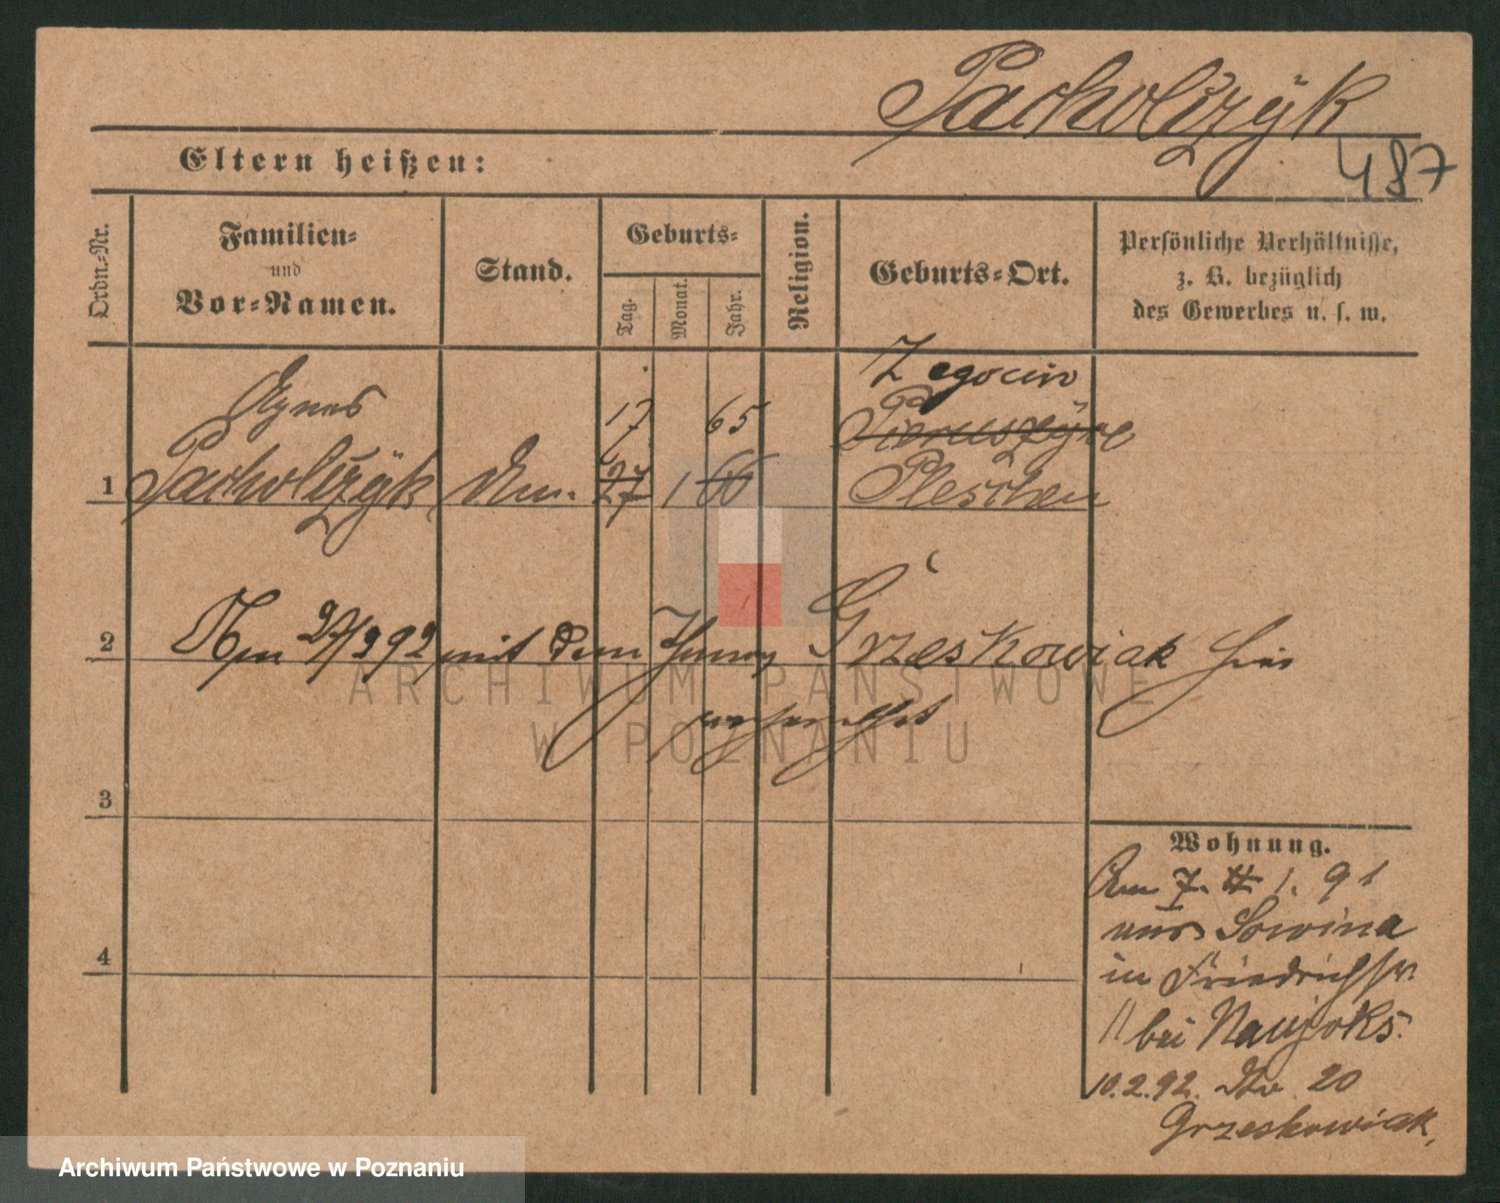 Pacholczyk
487
Eltern heißen:
Ordn.-Nr.
Familien-
und
Vor-Namen.
Stand.
Geburts-
Tag.
Monat.
Jahr.
Religion.
Geburts-Ort.
Persönliche Verhältnisse,
z. B. bezüglich
des Gewerbes u. s. w.
Zegocin
Agnes 17 65 Pieruszyce
1 Pacholczyk 27 1 66 Pleschen
2 Am 27/3 92 mit dem Grzeskowiak hier
3
4
Wohnung.
Am 7. 1. 91
aus Sowina
in Friedrichstr.
11 bei Naujoks.
10.2.92. 20
Grzeskowiak,
ARCHIWUM PAŃSTWOWE
W POZNANIU
Archiwum Państwowe w Poznaniu